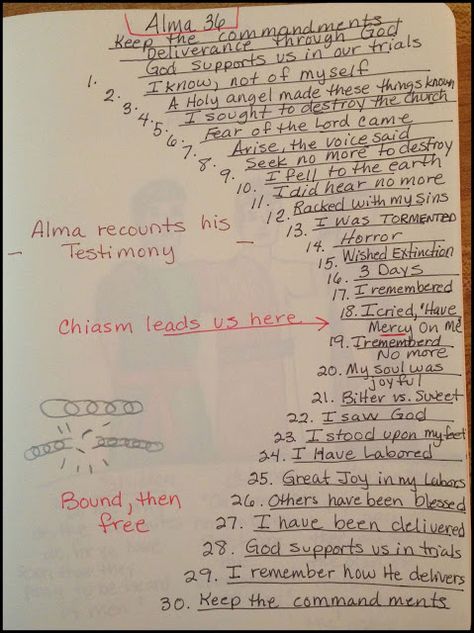 Alma 36
Keep the commandments
Deliverance through God
God supports us in our trials
1. I know, not of myself
2. A Holy angel made these things known
3. I sought to destroy the church
4. Fear of the Lord came
5. Arise, the voice said
6. Seek no more to destroy
7. I fell to the earth
8. I did hear no more
9.
10.
11.
12. Racked with my sins
13. I was TORMENTED
14. Horror
15. Wished Extinction
16. 3 Days
17. I remembered
18. I cried, "Have
Mercy on me
19. I rememberd
No more
20. My soul was
joyful
21. Bitter vs. Sweet
22. I saw God
23. I stood upon my feet
24. I Have Labored
25. Great Joy in my Labors
26. Others have been blessed
27. I have been delivered
28. God supports us in trials
29. I remember how He delivers
30. Keep the commandments
Alma recounts his
Testimony
Chiasm leads us here
Bound, then
free